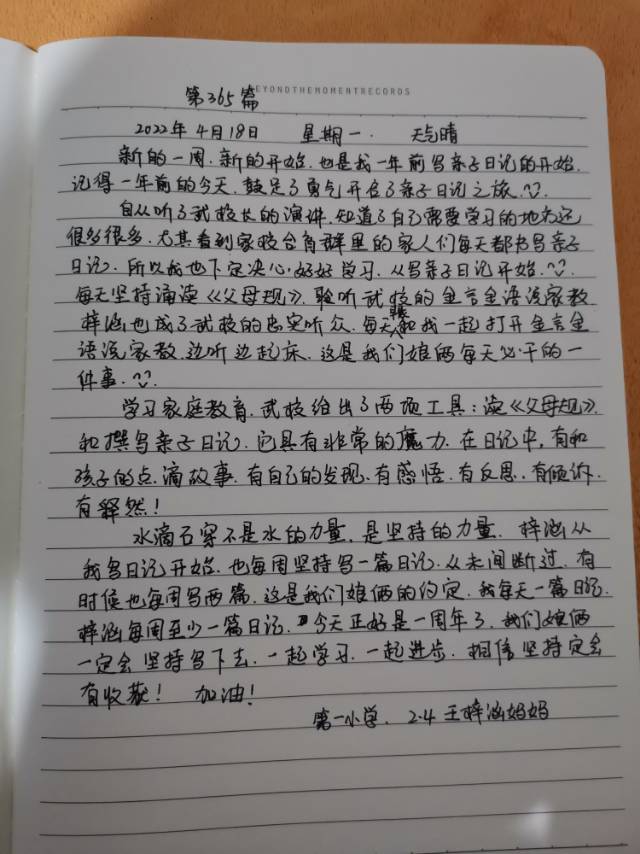 EYONDTHEMOMENTRECORDS
第365篇
2022年4月18日 星期一. 天气晴
新的一周.新的开始.也是我一年前写亲子日记的开始.
记得一年前的今天.鼓足了勇气开启了亲子日记之旅.
自从听了武校长的演讲.知道了自己需要学习的地方还
很多很多.尤其看到家校合育群里的家人们每天都书写亲子
日记.所以我也下定决心.好好学习.从写亲子日记开始.
每天坚持诵读《父母规》.聆听武校的金言金语说家教
梓涵也成了武校的忠实听众.每天都和我一起打开金言金
语说家教.边听边起床.这是我们娘俩每天必干的一
件事.
学习家庭教育.武校给出了两项工具:读《父母规》
和撰写亲子日记.它具有非常的魔力.在日记中.有和
孩子的点滴故事.有自己的发现.有感悟.有反思.有倾诉.
有释然!
水滴石穿不是水的力量.是坚持的力量.梓涵从
我写日记开始.也每周坚持写一篇日记.从未间断过.有
时候也每周写两篇.这是我们娘俩的约定.我每天一篇日记.
梓涵每周至少一篇日记.今天正好是一周年了.我们娘俩
一定会坚持写下去.一起学习.一起进步.相信坚持定会
有收获! 加油!
第一小学. 2.4 王梓涵妈妈